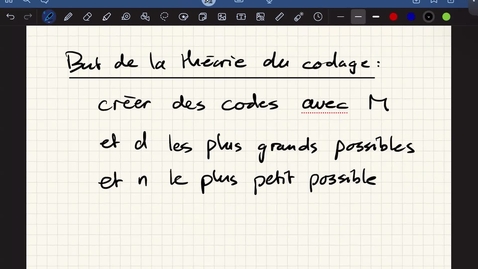 But de la théorie du codage :
créer des codes avec M
et d les plus grands possibles
et n le plus petit possible